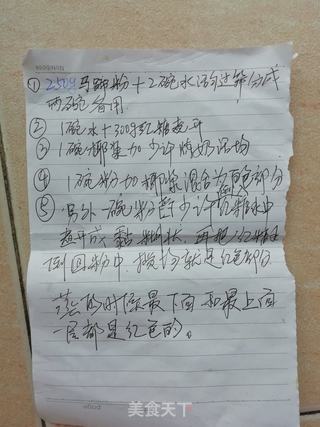 ① 250g马蹄粉+2碗水匀过筛分成
两碗备用
② 1碗水+300g红糖煮开
③ 1碗椰浆加少许炼奶混匀
④ 1碗粉加椰浆混合为白色部分
⑤ 另外一碗粉舀少许红糖水中
煮开成黏糊状,再把红糖
倒回粉中,搅匀就是红色部分
蒸的时候最下面和最上面
一层都是红色的。
美食天下